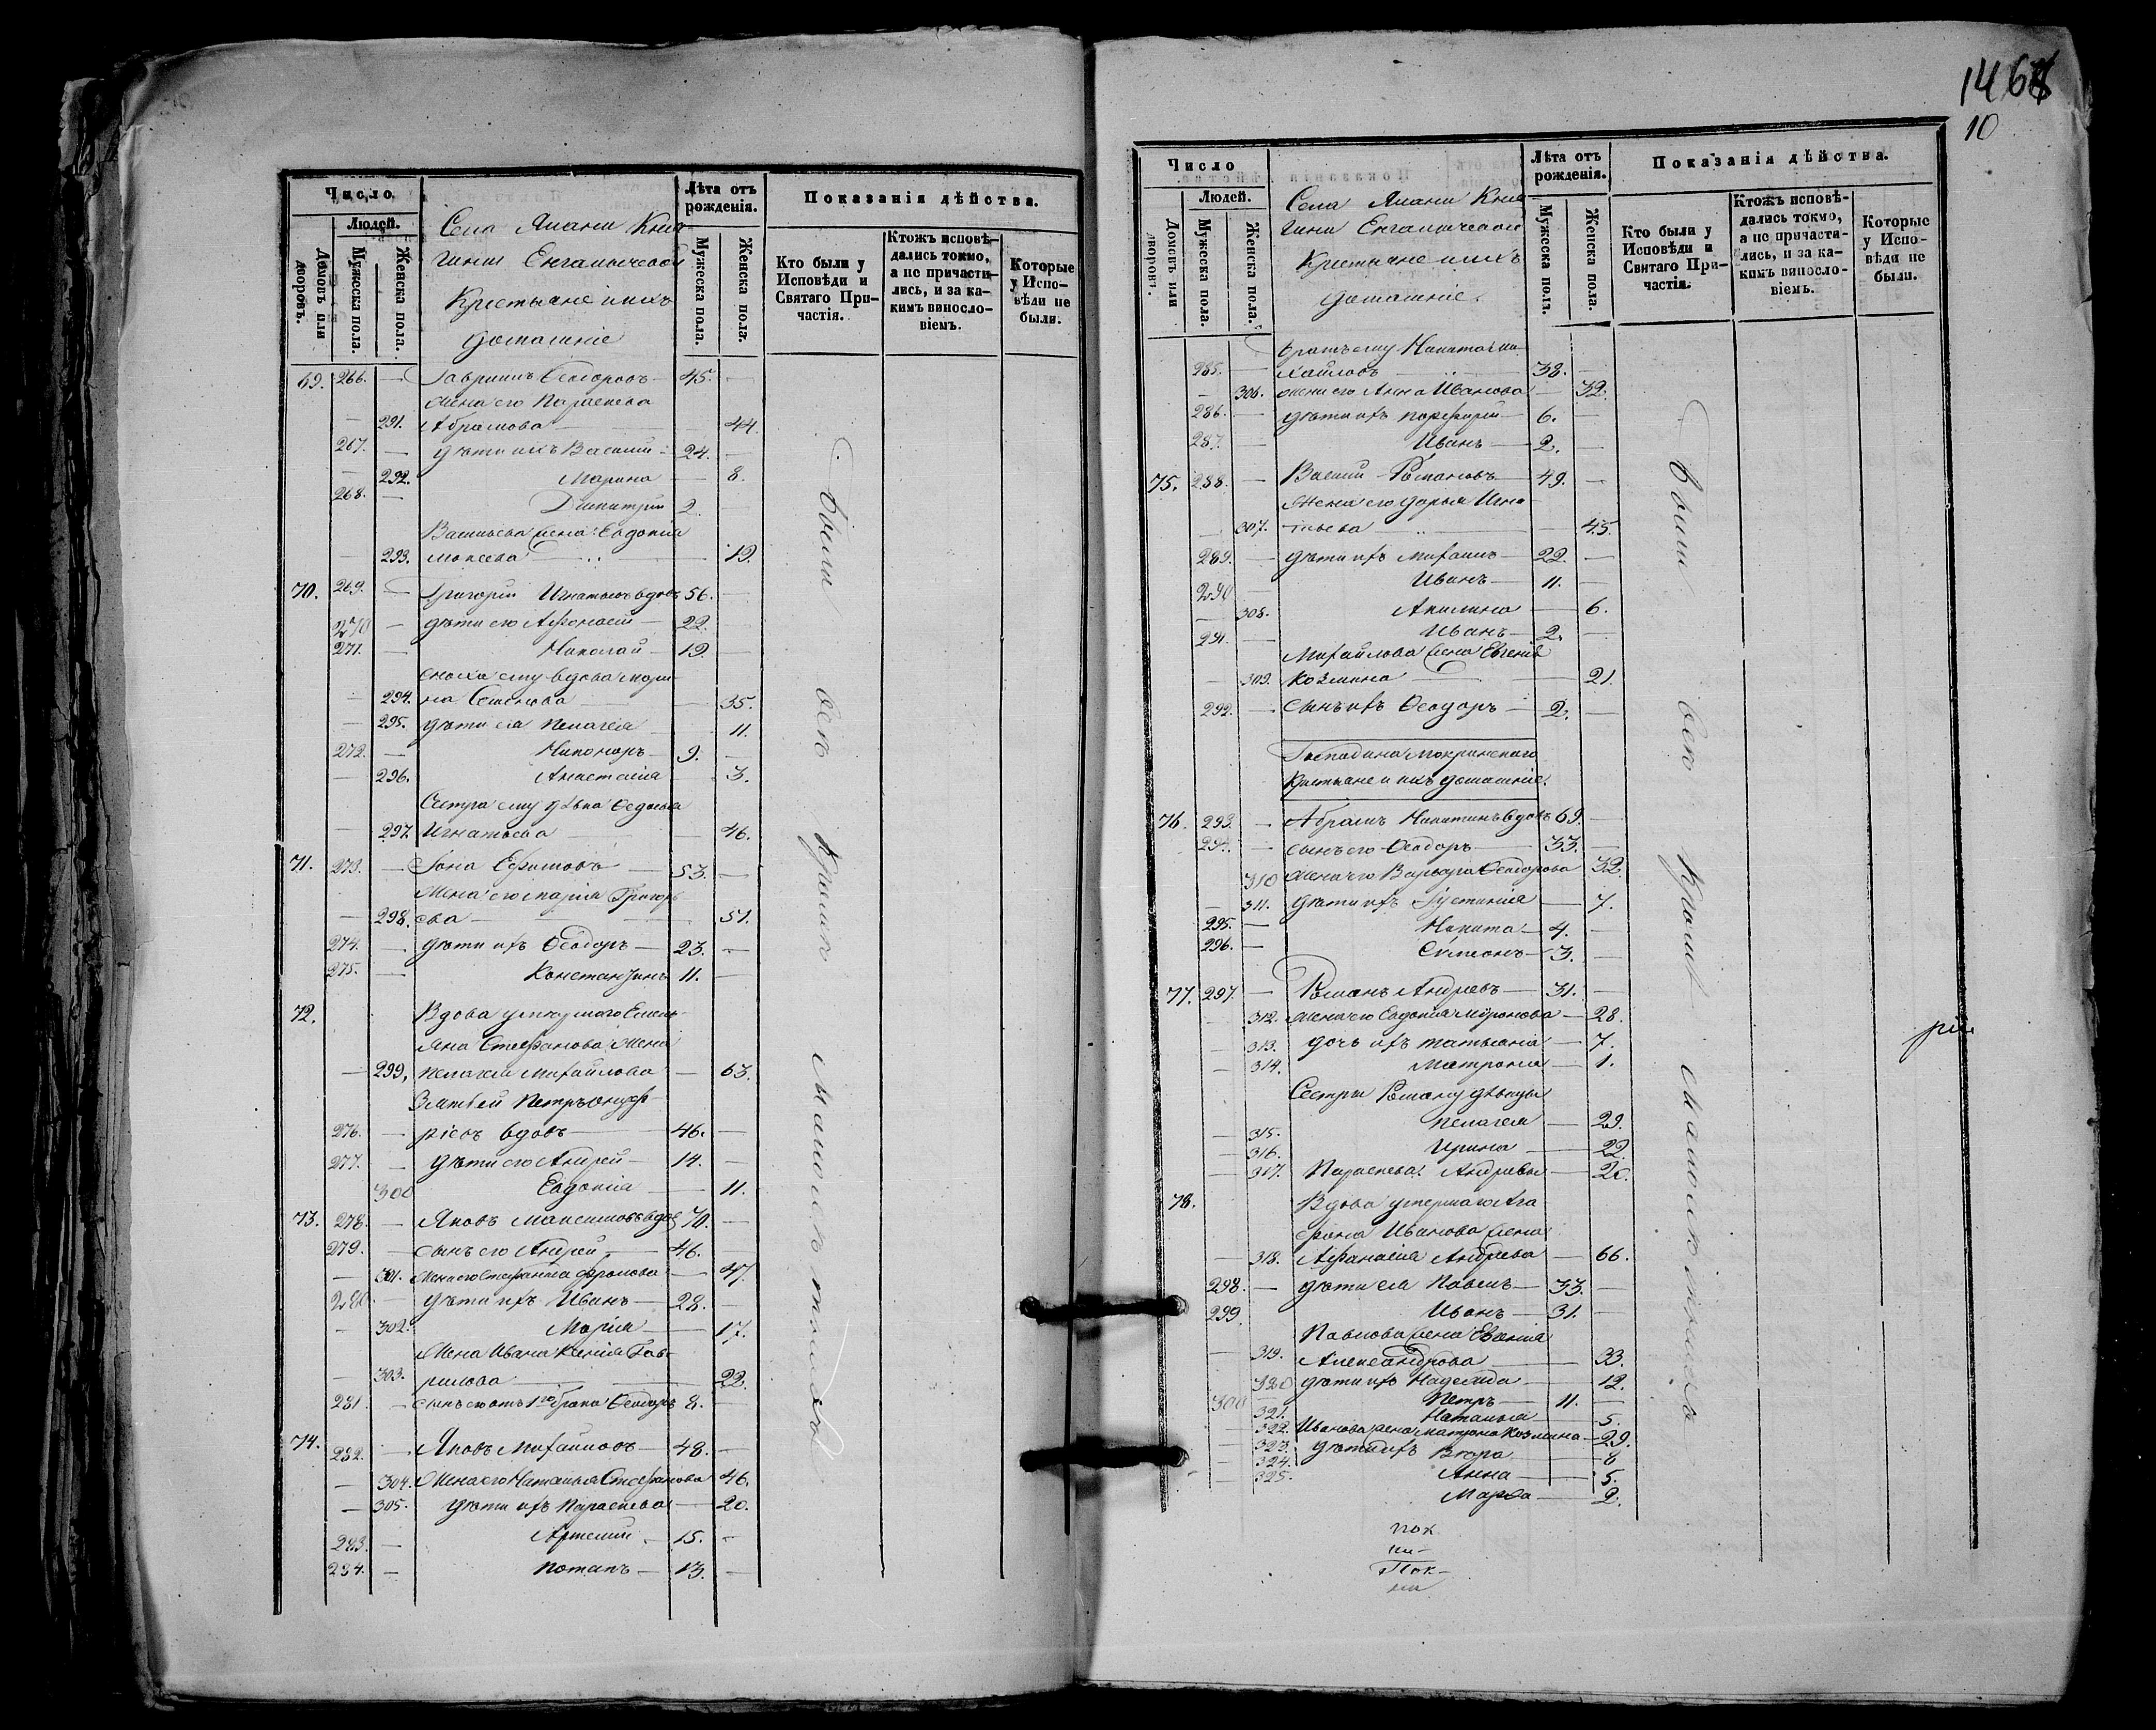 Число.
Людей.
Домовъ или дворовъ.
Мужеска пола.
Женска пола.
Села Ямани Кня-
гини Енгалычевой
Крестьяне и ихъ
домашніе
Лѣта отъ рожденія.
Мужеска пола.
Женска пола.
Показанія дѣйства.
Кто были у Исповѣди и Святаго При-частія.
Ктожъ исповѣ-дались токмо, а не причасти-лись, и за ка-кимъ винослo-віемъ.
Которые у Испо-вѣди не были.
69. 266. — Гавріилъ Ѳеодоровъ — 45. —
Жена его Параскева
— 291. Абрамова — 44.
267. — дѣти ихъ Василій — 24. —
— 292. Марина — 8.
268. — Димитрій 2.
Васильева жена Евдокія
— 293. Мокеева — 19.
70. 269. — Григорій Игнатьевъ вдовъ 56. —
270 — дѣти его Аѳонасій — 22. —
271. — Николай — 19. —
сноха ему вдова Мари-
— 294. на Семенова — 35.
— 295. дѣти ея Пелагея 11.
272. — Никоноръ — 9. —
— 296. Анастасія — 3.
Сестра ему дѣвка Ѳедосья
— 297. Игнатьева — 46.
71. 273. — Іона Ефимовъ — 53. —
Жена его Марія Григорь-
— 298. ева — 51.
274. — дѣти ихъ Ѳеодоръ — 23. —
275. — Константинъ 11. —
72. Вдова умершаго Емель-
яна Стефанова жена
— 299. Пелагея Михайлова — 63.
Зятьей Петръ Онуф-
276. — ріевъ вдовъ — 46. —
277. — дѣти его Андрей — 14. —
300 Евдокія — 11.
73. 278. — Яковъ Максимовъ вдовъ 70. —
279. — сынъ его Андрей — 46. —
— 301. Жена его Стефанида Фролова — 47.
280. — дѣти ихъ Иванъ — 28. —
— 302. Марія — 17.
Жена Ивана Ксенія Гав-
— 303. рилова — 22.
281. — сынъ его отъ 1го брака Ѳеодоръ 8. —
74. 282. — Яковъ Михайловъ — 48. —
— 304. Жена его Наталья Стефанова 46.
— 305. дѣти ихъ Параскева — 20.
283. — Артемій — 15. —
284. — Потапъ — 13. —
были всѣ кромѣ малолѣтнихъ
10
Число
Людей.
Домовъ или дворовъ.
Мужеска пола.
Женска пола.
Села Ямани Кня-
гини Енгалычевой
Крестьяне и ихъ
домашніе.
Лѣта отъ рожденія.
Мужеска пола.
Женска пола.
Показанія дѣйства.
Кто были у Исповѣди и Святаго При-частія.
Ктожъ исповѣ-дались токмо, а не причасти-лись, и за ка-кимъ винослo-віемъ.
Которые у Испо-вѣди не были.
братъ ему Никита Ми-
285. — хайловъ — 38. —
— 306. жена его Анна Иванова — 32.
286. — дѣти ихъ Порфирій — 6. —
287. — Иванъ — 2. —
75. 288. — Василій Романовъ — 49. —
Жена его Дарья Игна-
— 307. тьева — 45.
289. — дѣти ихъ Михаилъ — 22. —
290 Иванъ — 11. —
— 308. Акилина — 6.
291. — Иванъ — 2. —
Михайлова жена Евгенія
— 309. Козмина — 21.
292. — сынъ ихъ Ѳеодоръ — 2. —
Господина Мокринскаго
Крестьяне и ихъ домашніе.
76. 293. — Абрамъ Никитинъ вдовъ 69. —
294. — сынъ его Ѳеодоръ — 33. —
310 Жена его Варвара Ѳеодорова 32.
— 311. дѣти ихъ Іустинія — 7.
295. — Никита — 4. —
296. — Сѵмеонъ — 3. —
77. 297. — Романъ Андревъ — 31. —
— 312. Жена его Евдокія Миронова — 28.
— 313. дочь ихъ Татьяна — 7.
— 314. Матрона — 1.
Сестры Роману дѣвицы
— 315. Пелагея — 29.
— 316. Ирина — 22.
— 317. Параскева Андревы —
78. Вдова умершаго Ага-
фона Иванова жена
— 318. Афанасія Андрева — 66.
298. — дѣти ея Павелъ — 33. —
299. Иванъ — 31. —
Павлова жена Евгенія
— 319. Александрова — 33.
320 дѣти ихъ Надежда — 12.
300 — Петръ — 11. —
321. Наталья — 5.
— 322. Иванова жена Матрона Козмина — 29.
— 323. дѣти ихъ Вѣра — 8
— 324. Анна — 5.
— 325. Марѳа — 2.
были всѣ кромѣ малолѣтнихъ